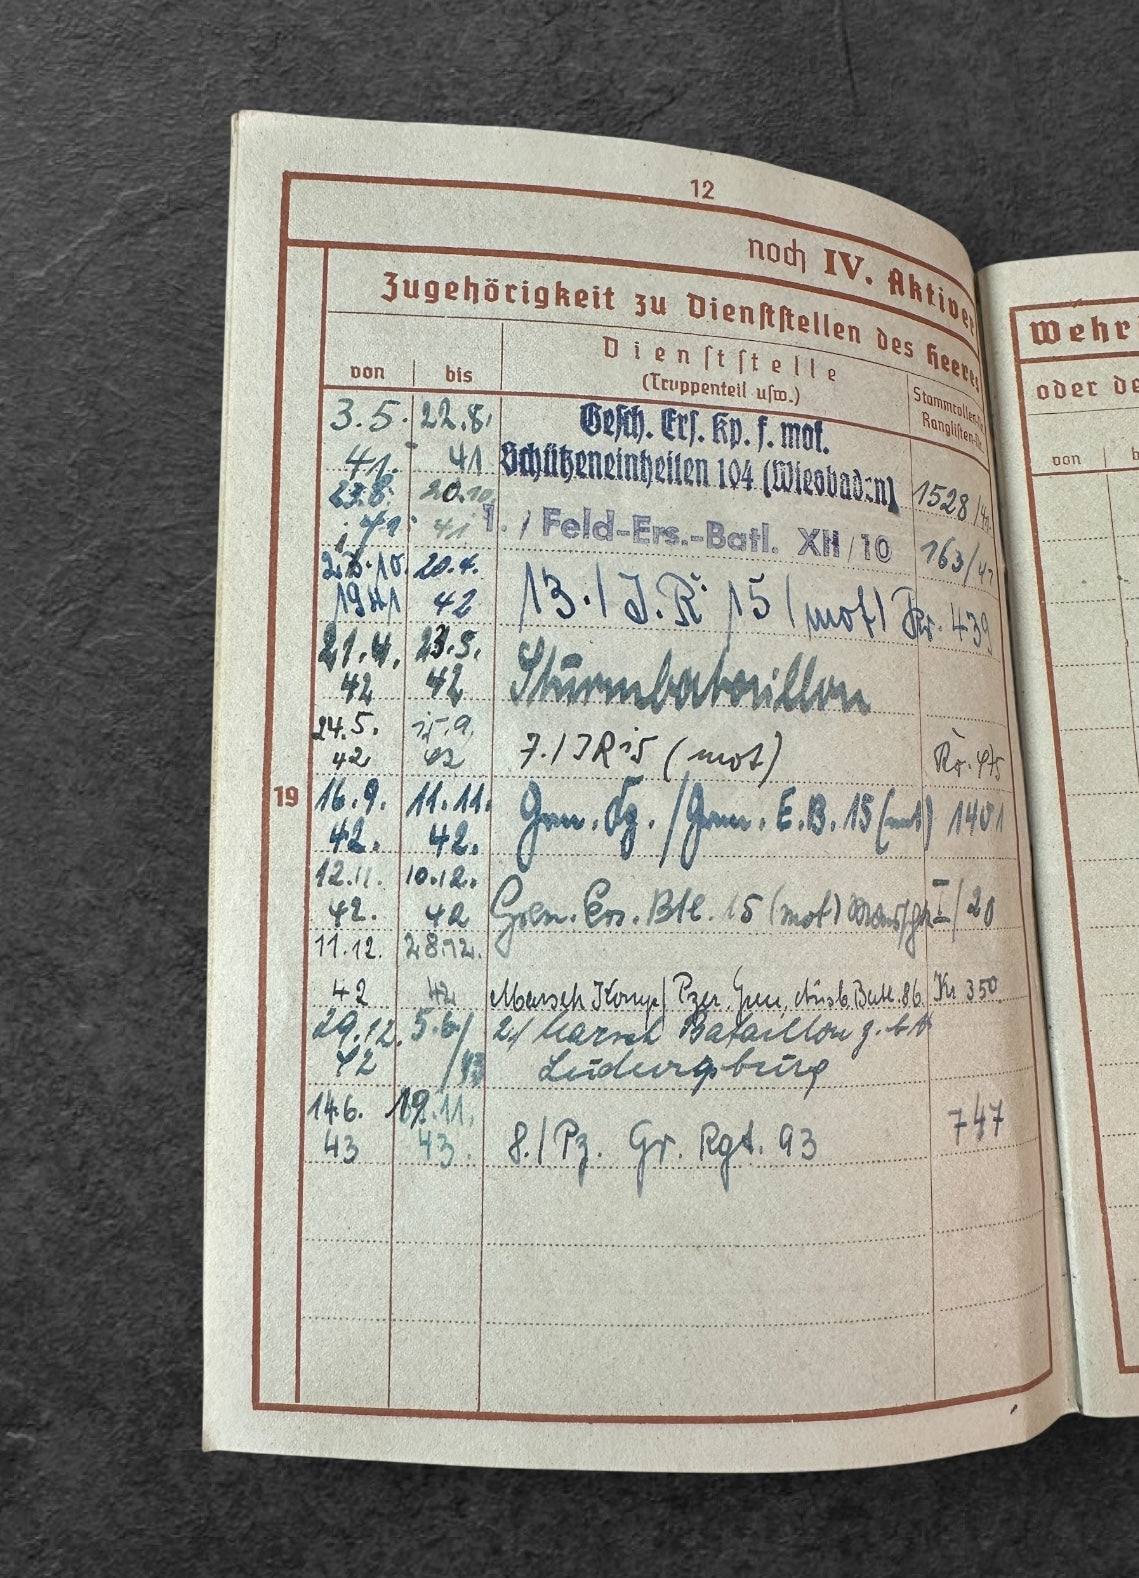 12
noch IV. Aktiver
Zugehörigkeit zu Dienststellen des Heeres
von bis
Dienststelle
(Truppenteil usw.)
Stammrollen-Nr.
Ranglisten-Nr.
3.5. 22.8. Gesch. Ers. Kp. f. mot.
41. 41 Schützeneinheiten 104 (Wiesbaden) 1528/41.
23.8. 20.10.
41 41 1. / Feld-Ers.-Batl. XII/10 163/41
20.4.
1941 42 13./J.R. 15 (mot) Kr. 439
21.4. 23.5.
42 42 Sturmbataillon
24.5. 15.9.
42 42 7./JR 15 (mot) Kr. 475
19
16.9. 11.11. Gren. Kp./Gren. E.B. 15 (mot) 1401
42. 42.
12.11. 10.12.
42. 42 Gren. Ers. Btl. 15 (mot) I/20
11.12. 28.12.
42 42 Marsch Komp/ Pzer. Gren. Ausb. Batl. 86. Kr 350
29.12. 5.6/ 2/ Marsch Bataillon z.b.V
42 /43 Ludwigsburg
14.6. 19.11. 747
43 43. 8./Pz. Gr. Rgt. 93
Wehr
oder de
von b